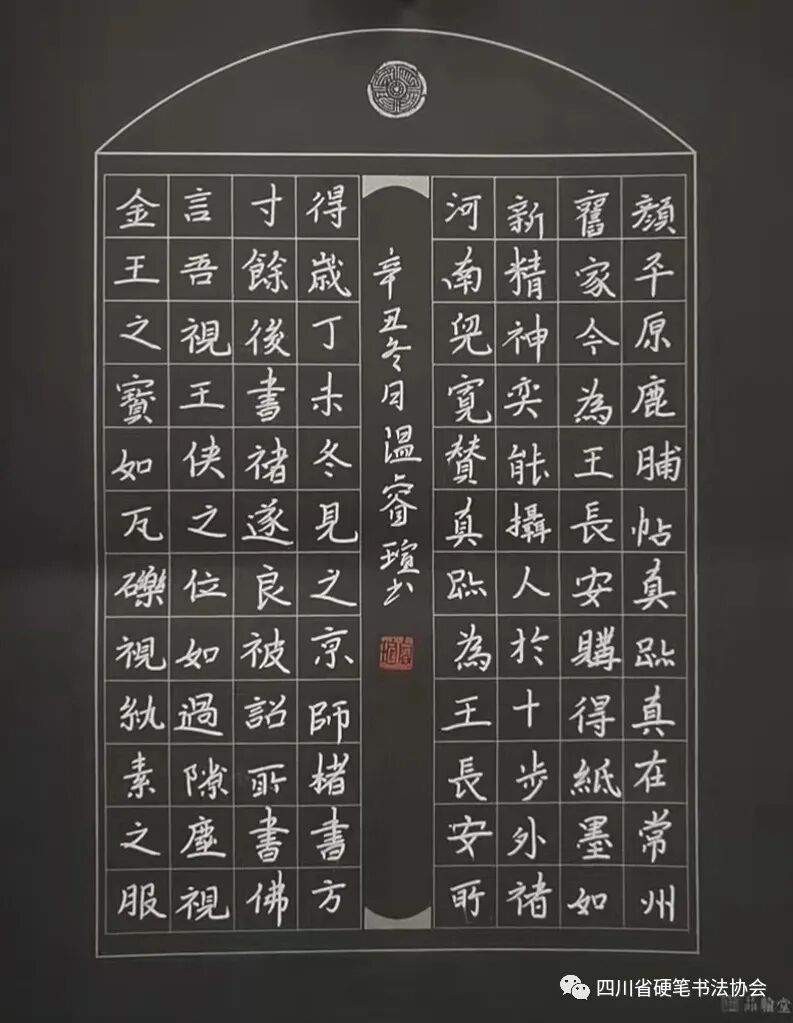 顏平原鹿脯帖真跡真在常州
舊家今為王長安購得紙墨如
新精神奕能攝人於十步外褚
河南兒寬贊真跡為王長安所
辛丑冬月溫睿瑄书
得歲丁未冬見之京師楮書方
寸餘後書褚遂良被詔所書佛
言吾視王侯之位如過隙塵視
金王之寶如瓦礫視紈素之服
四川省硬笔书法协会